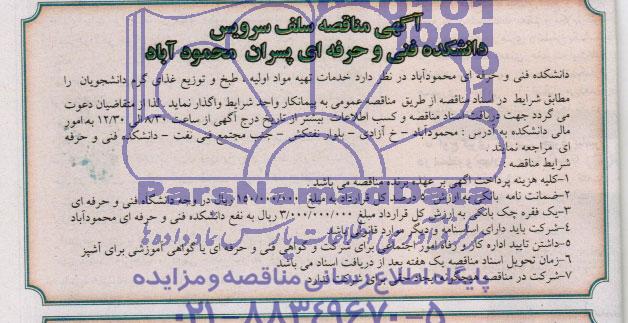 آگهی مناقصه سلف سرویس
دانشکده فنی و حرفه ای پسران محمود آباد
دانشکده فنی و حرفه ای محمودآباد در نظر دارد خدمات تهیه مواد اولیه، طبخ و توزیع غذای گرم دانشجویان را
مطابق شرایط در اسناد مناقصه از طریق مناقصه عمومی به پیمانکار واجد شرایط واگذار نماید. لذا از متقاضیان دعوت
می گردد جهت دریافت اسناد مناقصه و کسب اطلاعات بیشتر از تاریخ درج آگهی از ساعت ۸/۳۰ الی ۱۲/۳۰ به امور
مالی دانشکده به آدرس : محمودآباد - خ آزادی - بلوار نفتکش - جنب مجتمع فنی نفت - دانشکده فنی و حرفه
ای مراجعه نمایند.
شرایط مناقصه :
۱-کلیه هزینه پرداخت آگهی بر عهده برنده مناقصه می باشد.
۲-ضمانت نامه بانکی به ارزش ۵ درصد کل قرارداد به مبلغ ۱۵۰/۰۰۰/۰۰۰ ریال در وجه دانشگاه فنی و حرفه ای
۳-یک فقره چک بانکی به ارزش کل قرارداد مبلغ ۳/۰۰۰/۰۰۰/۰۰۰ ریال به نفع دانشکده فنی و حرفه ای محمودآباد
۴-شرکت باید دارای اساسنامه و دیگر موارد قانونی باشد.
۵-داشتن تایید اداره کار و رفاه امور اجتماعی برای شرکت و گواهی فنی و حرفه ای یا گواهی آموزشی برای آشپز
۶-زمان تحویل اسناد مناقصه یک هفته بعد از دریافت اسناد می باشد.
۷-شرکت در مناقصه هیچگونه حقی برای شرکت ندارد.
ParsNamadData
پایگاه اطلاع رسانی مناقصه و مزایده
۰۲۱-۸۸۳۴۹۶۷۰-۵